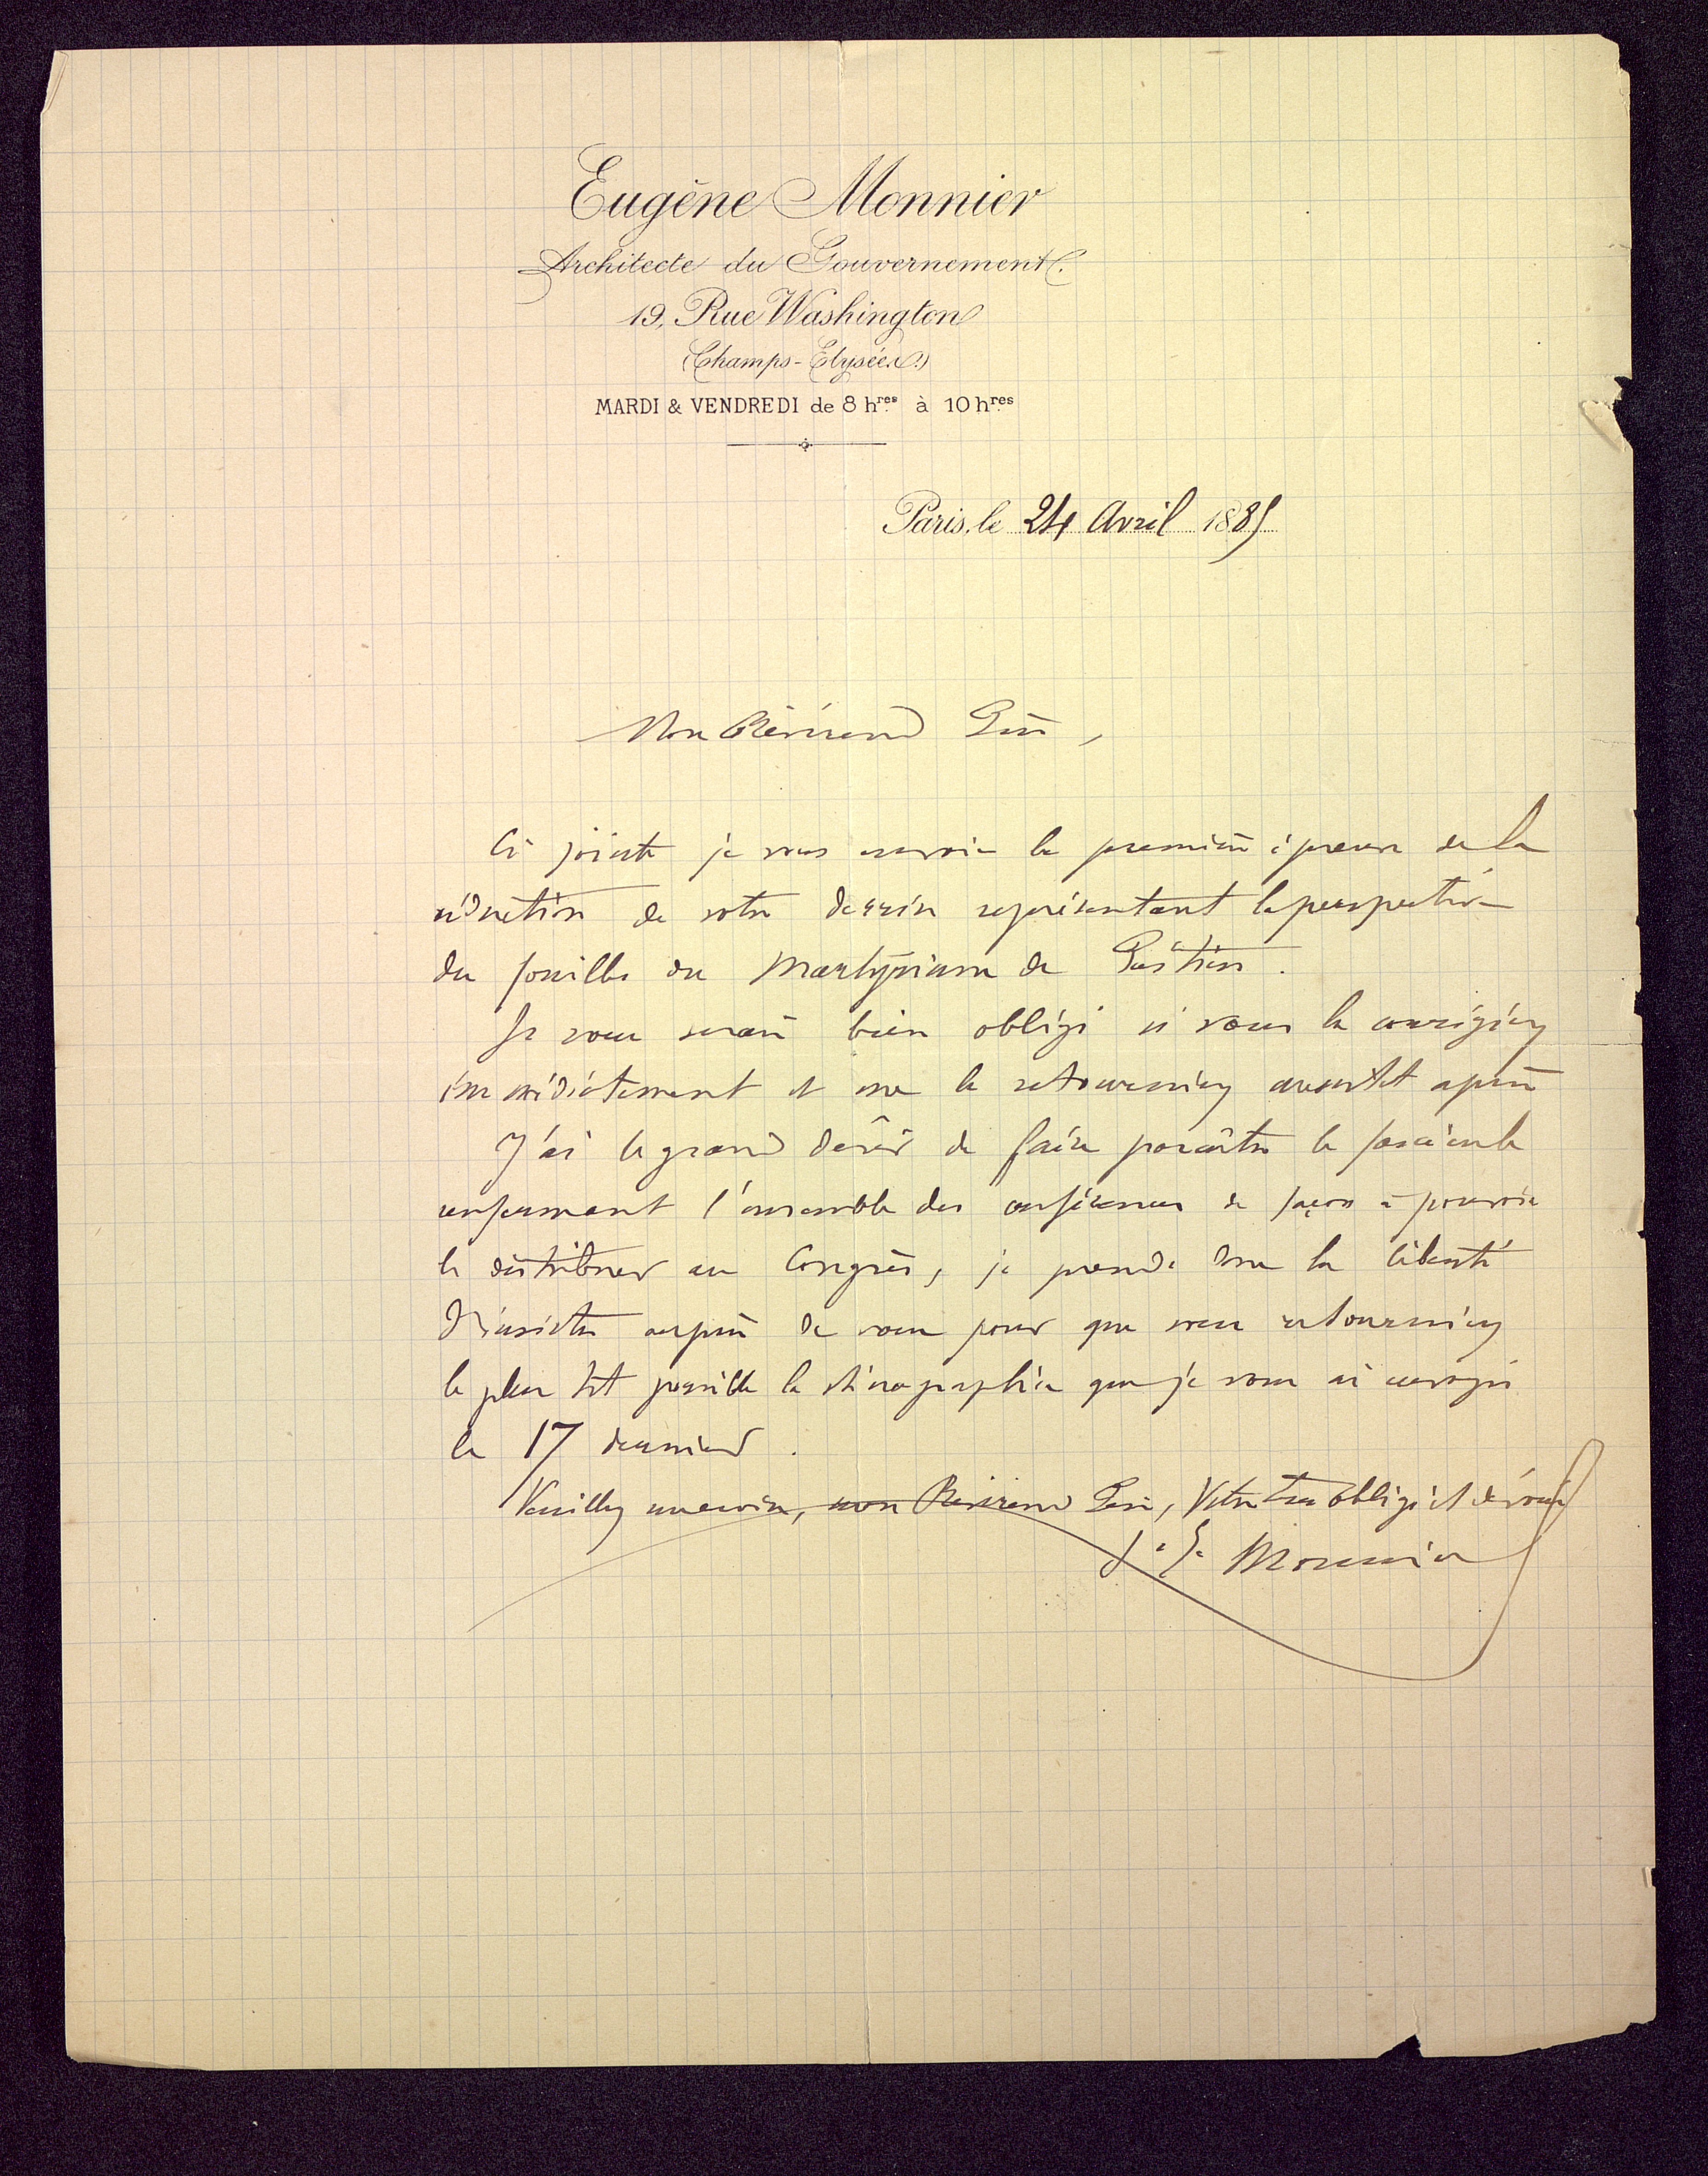 Eugène Monnier
Architecte du Gouvernement.
19, Rue Washington
(Champs-Elysées)
MARDI & VENDREDI de 8 hres à 10 hres
Paris, le 24 Avril 1885
Mon Révérend Père,
Ci jointe je vous envoie la première épreuve de la
réduction de votre dessin représentant la perspective
des fouilles du Martyrium de Poitiers.
Je vous serais bien obligé si vous la corrigiez
immédiatement et me la retourniez aussitôt après
J'ai le grand désir de faire paraître le fascicule
renfermant l'ensemble des conférences de façon à pouvoir
le distribuer au Congrès, je prends donc la liberté
d'insister auprès de vous pour que vous retourniez
le plus tôt possible la sténographie que je vous ai envoyée
le 17 dernier.
Veuillez me croire, mon Révérend Père, Votre très obligé et dévoué
E. Monnier